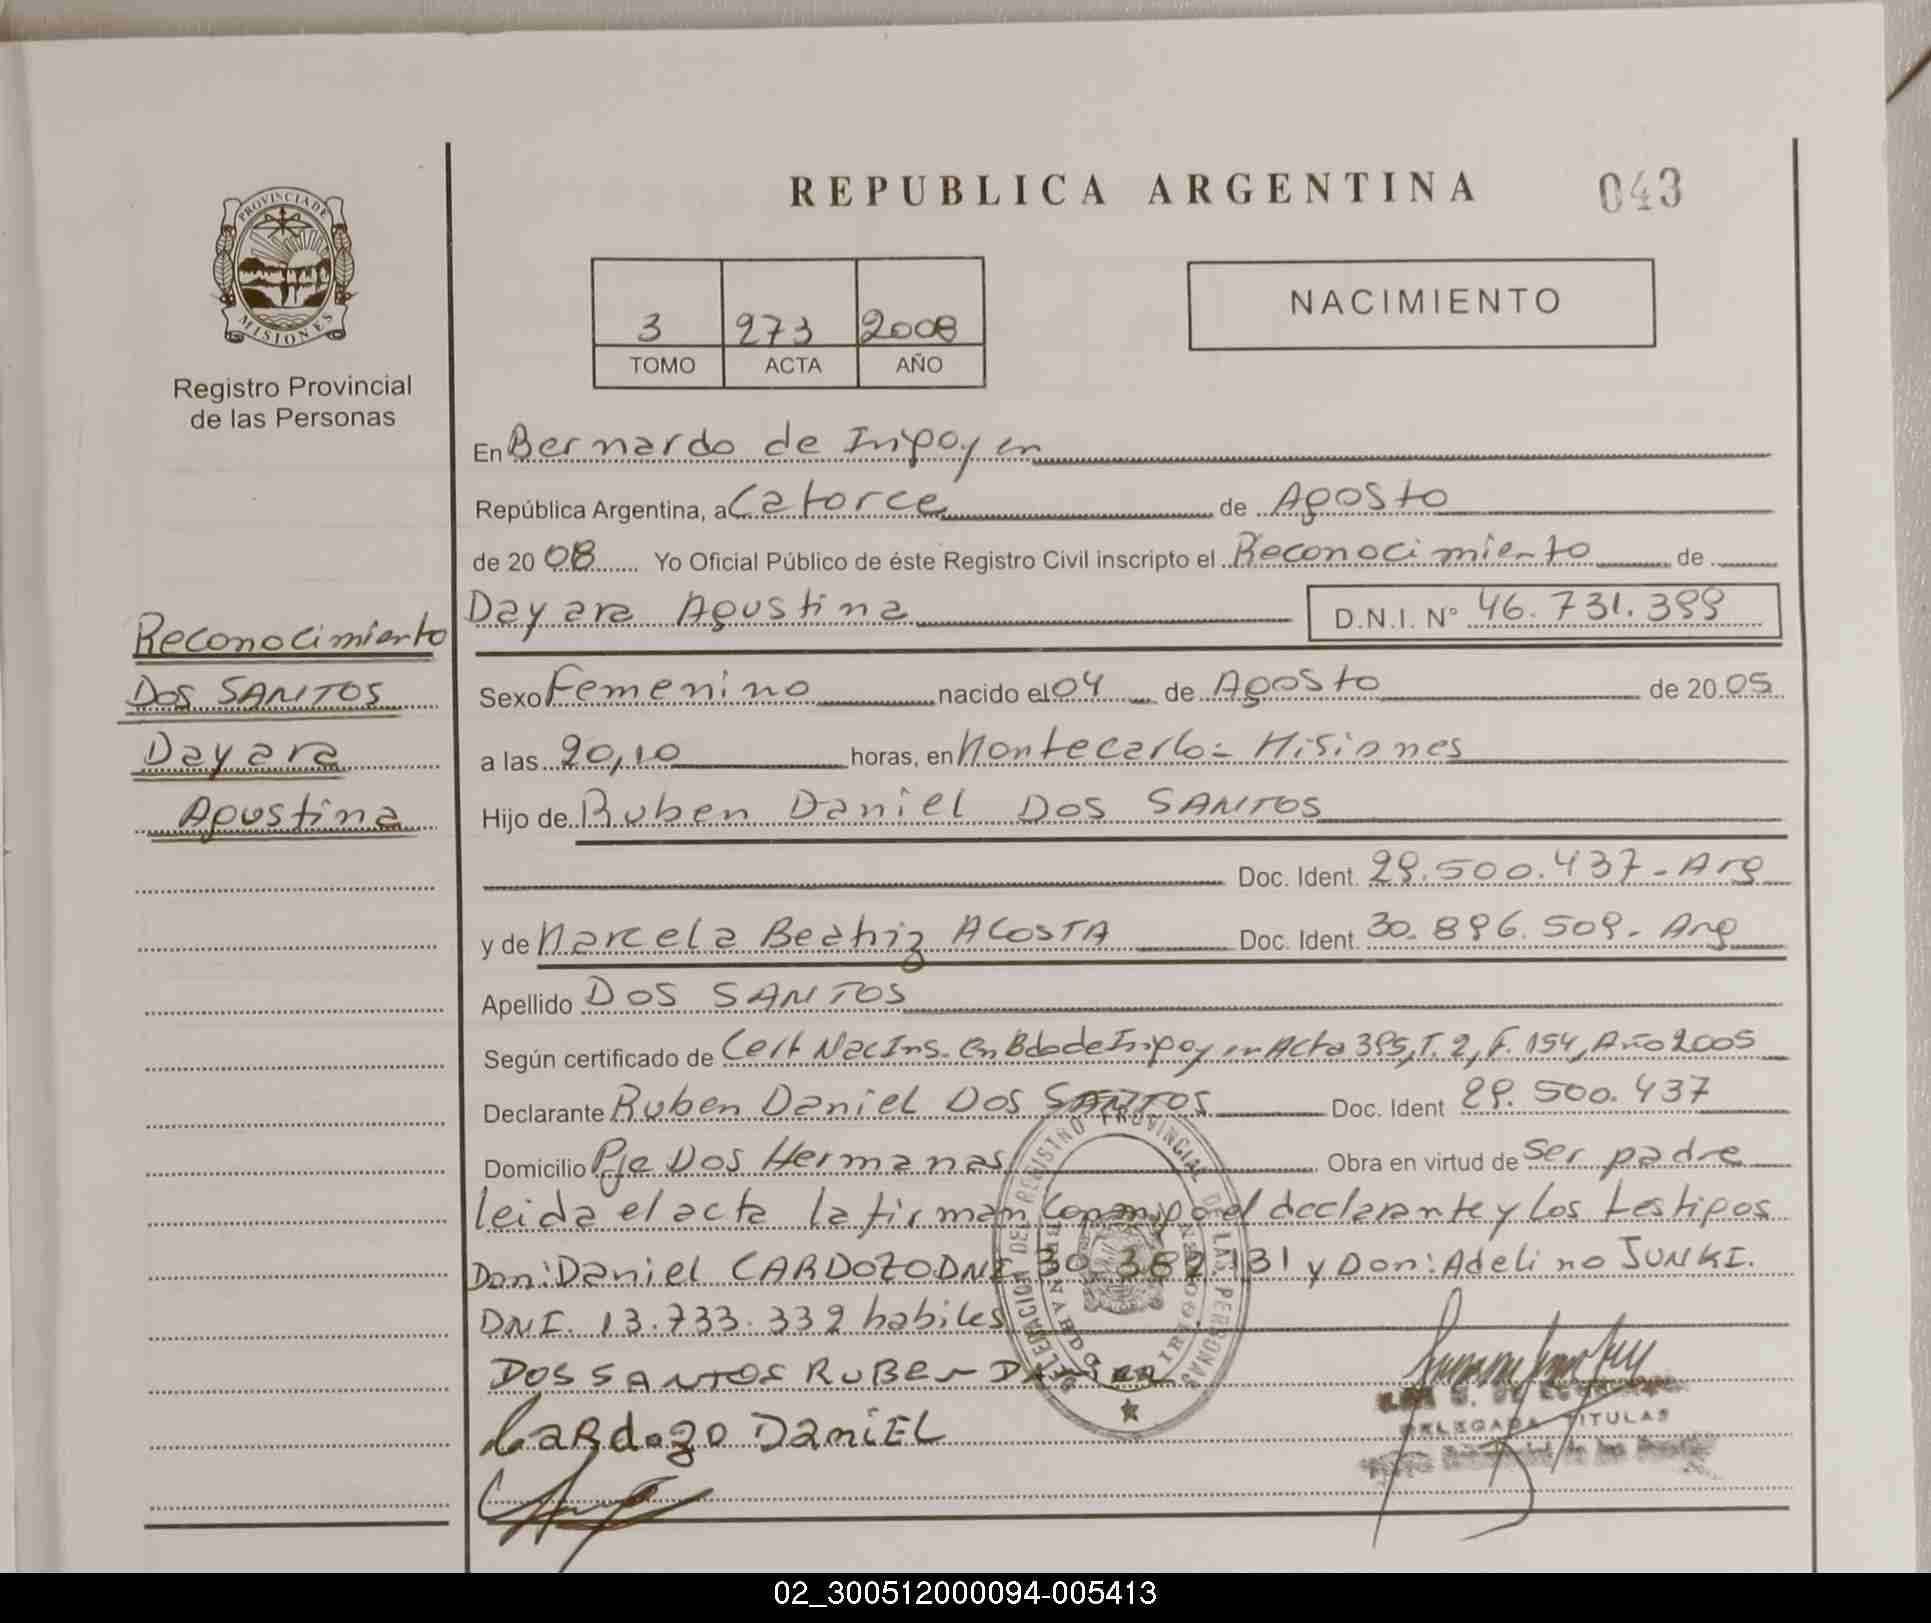 REPUBLICA ARGENTINA
043
PROVINCIA DE
MISIONES
Registro Provincial
de las Personas
3 273 2008
TOMO ACTA AÑO
NACIMIENTO
En Bernardo de Irigoyen
República Argentina, a Catorce de Agosto
de 20 08 Yo Oficial Público de éste Registro Civil inscripto el Reconocimiento de
Dayara Agustina D.N.I. N° 46.731.399
Reconocimiento
DOS SANTOS
Dayara
Agustina
Sexo Femenino nacido el 04 de Agosto de 20 05
a las 20,10 horas, en Montecarlo - Misiones
Hijo de Ruben Daniel DOS SANTOS
Doc. Ident. 29.500.437 - Arg
y de Marcela Beatriz ACOSTA Doc. Ident. 30.896.509 - Arg
Apellido DOS SANTOS
Según certificado de Cert Nac Ins. en Bdo de Irigoyen Acta 395, T. 2, F. 154, Año 2005
Declarante Ruben Daniel DOS SANTOS Doc. Ident 29.500.437
Domicilio Pje Dos Hermanas Obra en virtud de ser padre
leida el acta la firman conmigo el declarante y los testigos
Don: Daniel CARDOZO DNI 30.382.131 y Don: Adelino JUNKI.
DNI. 13.733.339 habiles
DELEGACION DEL REGISTRO PROVINCIAL DE LAS PERSONAS
BERNARDO DE IRIGOYEN
DOS SANTOS RUBEN DANIEL
CARdozo DANiEL
DELEGADA TITULAR
02_300512000094-005413